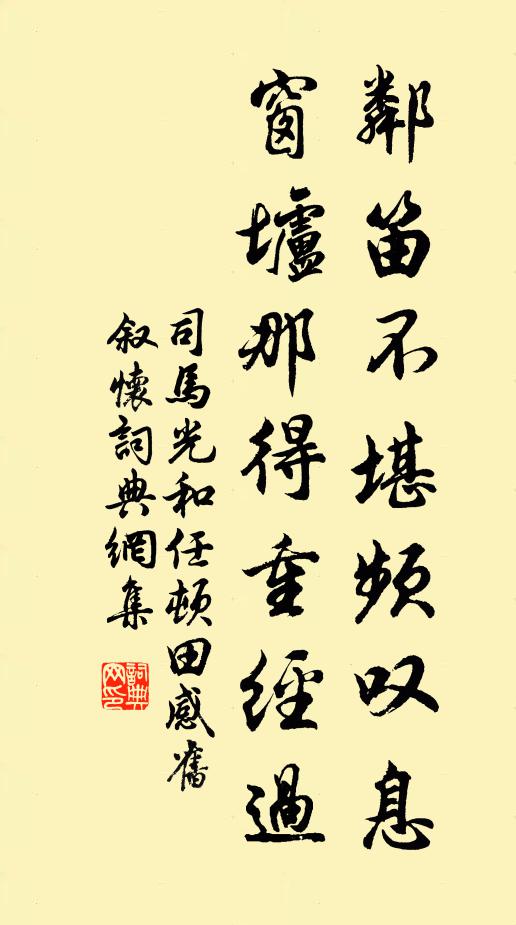 鄰笛不堪頻叹息
窗壚那得重經過
司馬光和任屯田感舊
叙懷詞典網集
詞典网印